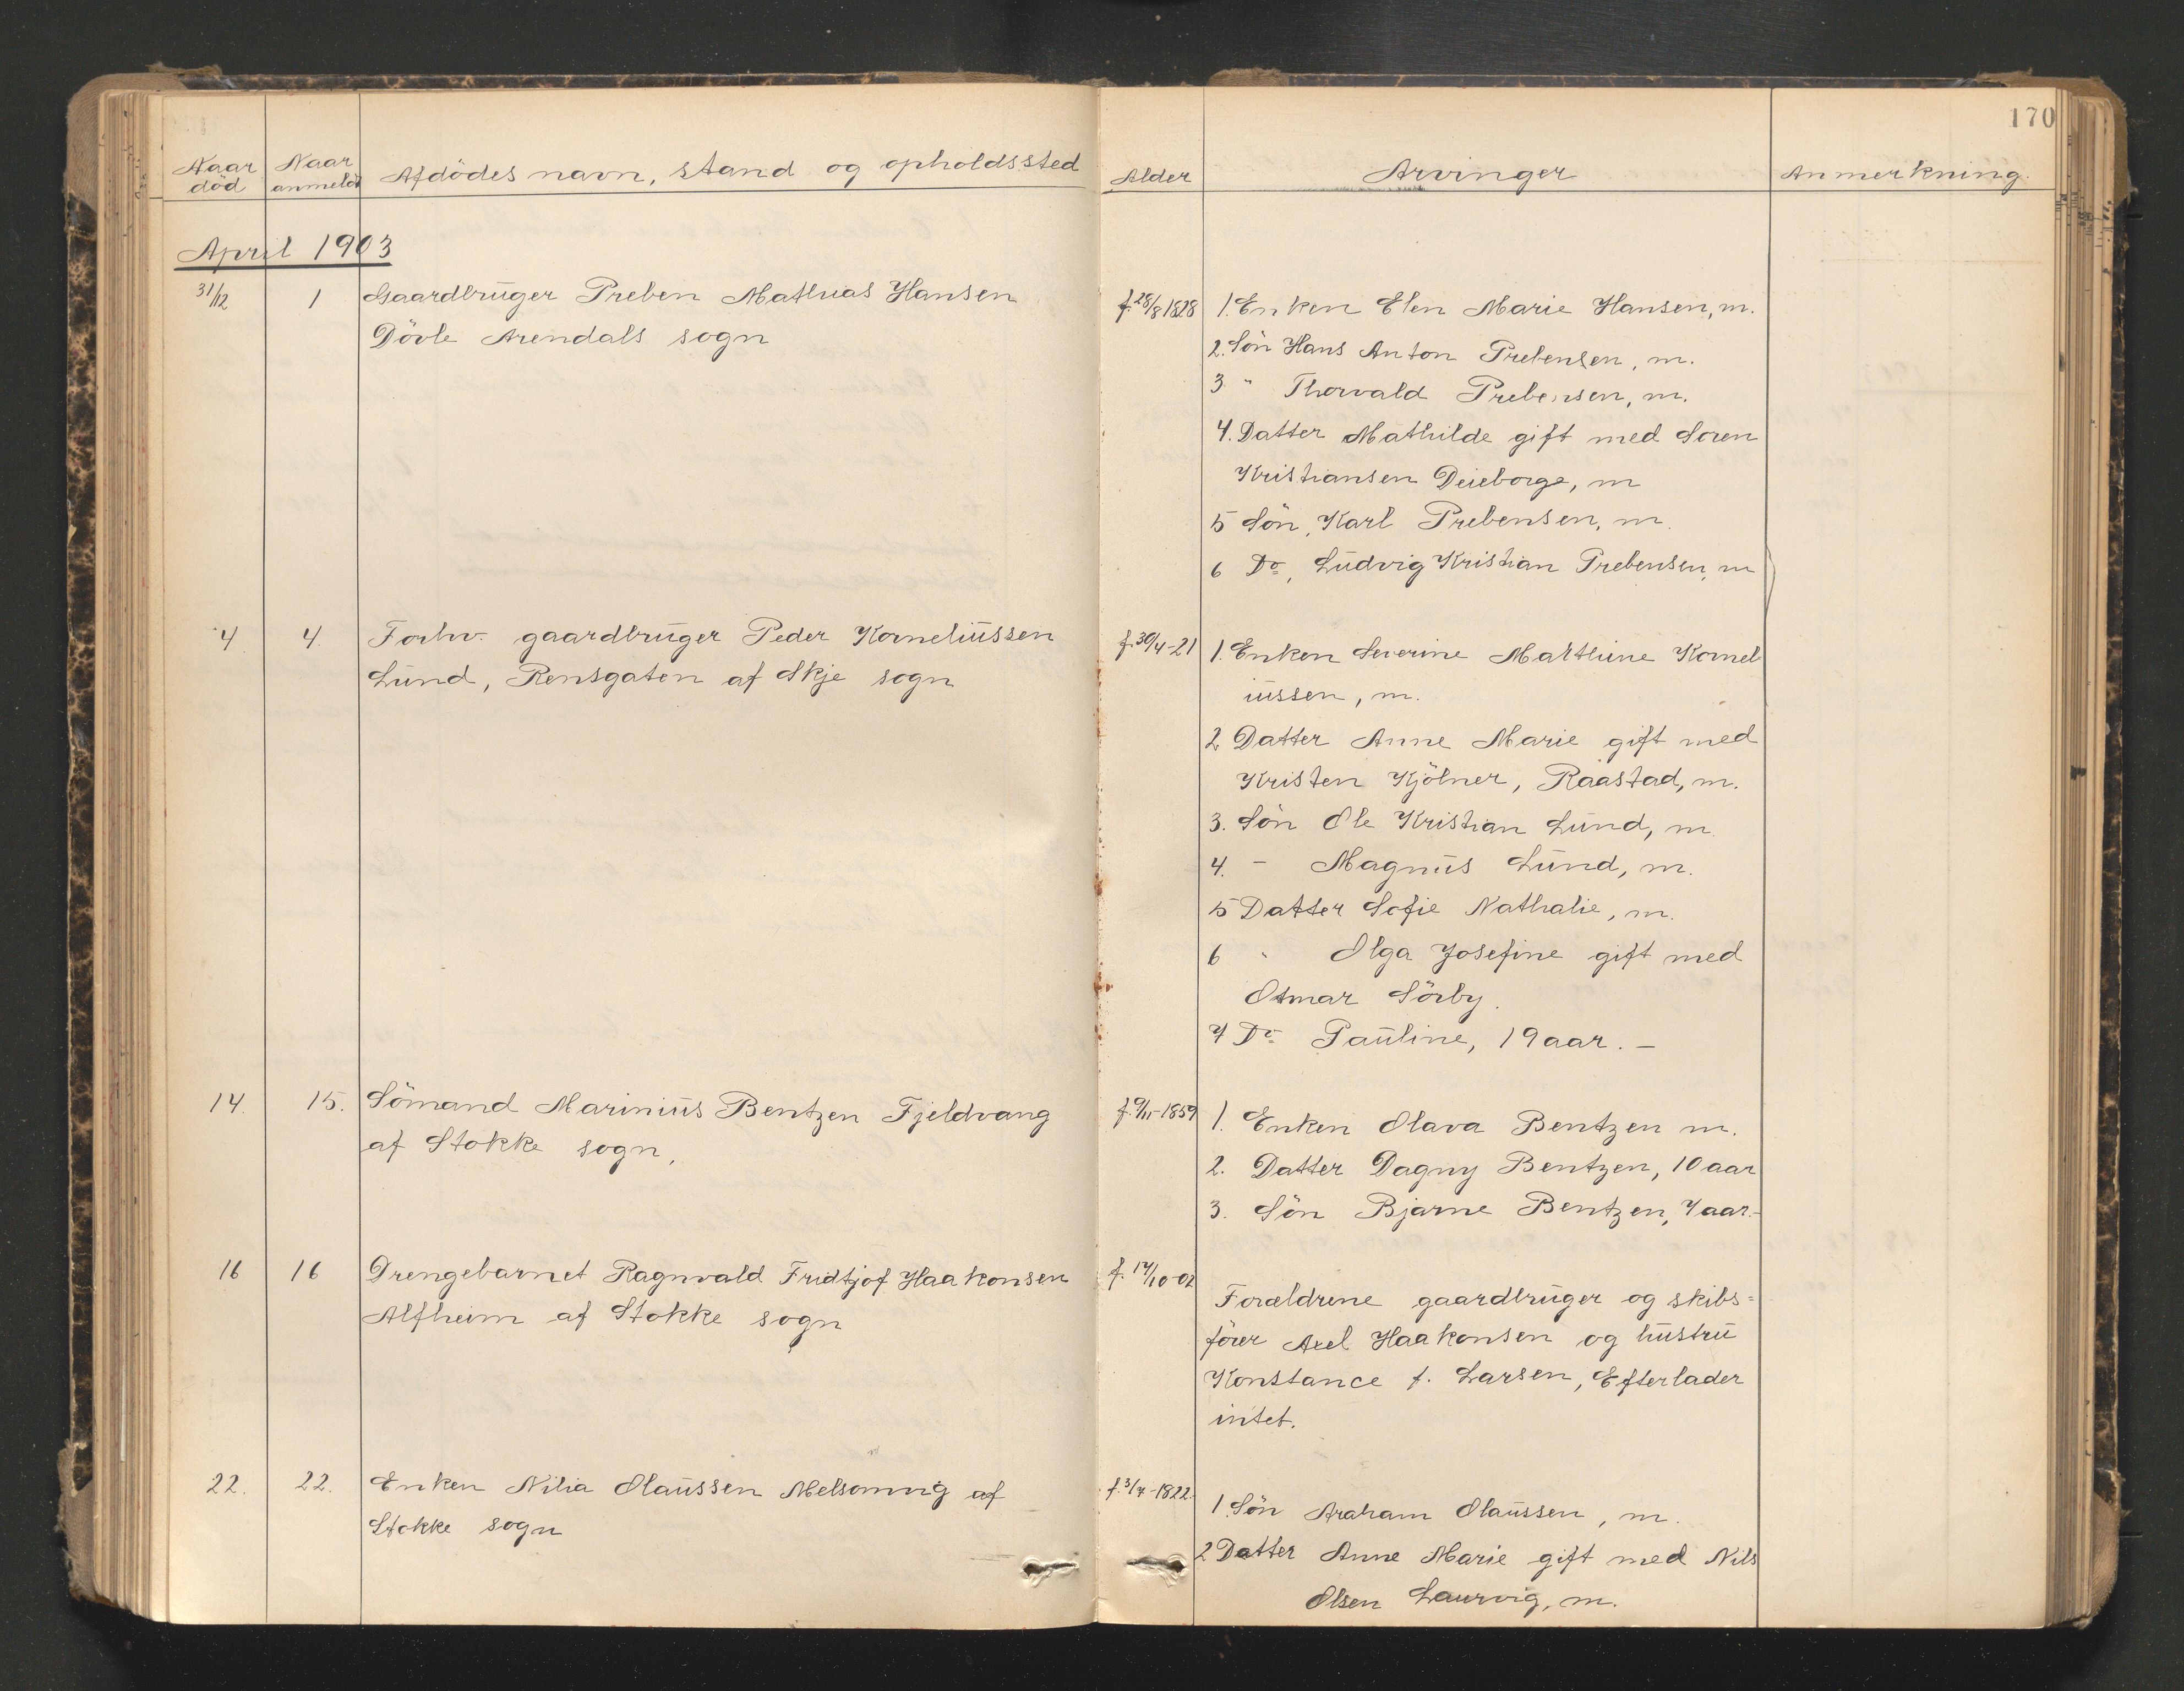 170
Naar død
Naar anmeldt
Afdödes navn, stand og opholdssted
Alder
Arvinger
Anmerkning.
April 1903
31/12 1 Gaardbruger Preben Mathias Hansen
Dövle Arendals sogn
f. 28/8 1828
1. Enken Elen Marie Hansen, m.
2. Sön Hans Anton Prebensen, m.
3 " Thorvald Prebensen, m.
4. Datter Mathilde gift med Soren
Kristiansen Deieborge, m
5 Sön, Karl Prebensen, m.
6 Do, Ludvig Kristian Prebensen, m
4 4. Forhv. gaardbruger Peder Korneliussen
Lund, Rensgaten af Skje sogn
f. 30/4-21
1. Enken Severine Malthine Kornel
iussen, m.
2 Datter Anne Marie gift med
Kristen Kjölner, Raastad, m.
3. Sön Ole Kristian Lund, m.
4. - Magnus Lund, m.
5 Datter Sofie Nathalie, m.
6 " Olga Josefine gift med
Otmar Sörby.
7 Do Pauline, 19 aar. -
14. 15. Sömand Marinius Bentzen Fjeldvang
af Stokke sogn,
f. 9/11-1859
1. Enken Olava Bentzen m.
2. Datter Dagny Bentzen, 10 aar
3. Sön Bjarne Bentzen, 7 aar.-
16 16 Drengebarnet Ragnvald Fridtjof Haakonsen
Alfheim af Stokke sogn
f. 14/10-02
Forældrene gaardbruger og skibs=
förer Axel Haakonsen og hustru
Konstance f. Larsen, Efterlader
intet.
22. 22. Enken Nilia Olaussen Melsomvig af
Stokke sogn
f. 3/4-1822.
1. Sön Araham Olaussen, m.
2 Datter Anne Marie gift med Nils
Olsen Laurvig, m.